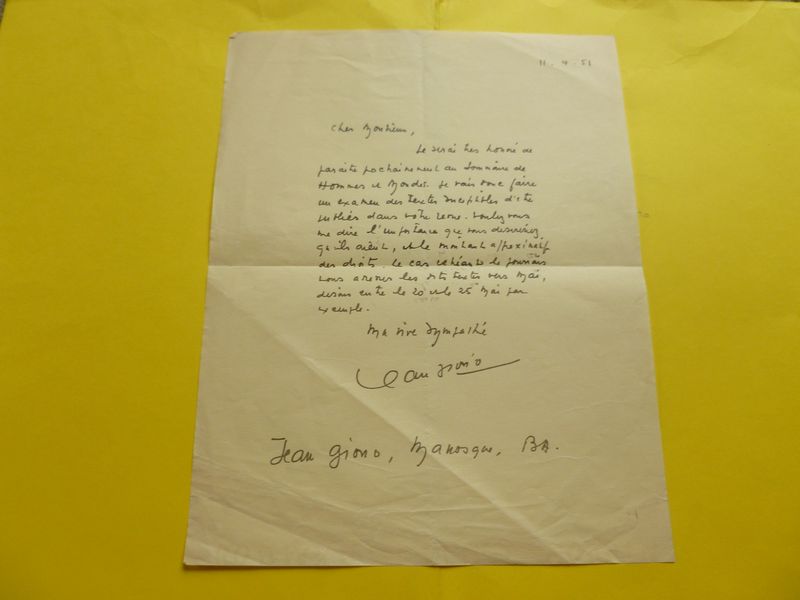 11 . 4 . 51
Cher Monsieur,
Je serai très honoré de
paraître prochainement au Sommaire de
Hommes et Mondes. Je vais donc faire
un examen des textes susceptibles d'être
publiés dans votre revue. Voulez vous
me dire l'importance que vous desireriez
qu'ils aient, et le montant approximatif
des droits. Le cas échéant je pourrais
vous les dits textes vers Mai,
disons entre le 20 et le 25 Mai par
exemple.
Ma vive sympathie
Jean Giono
Jean Giono, Manosque, BA.